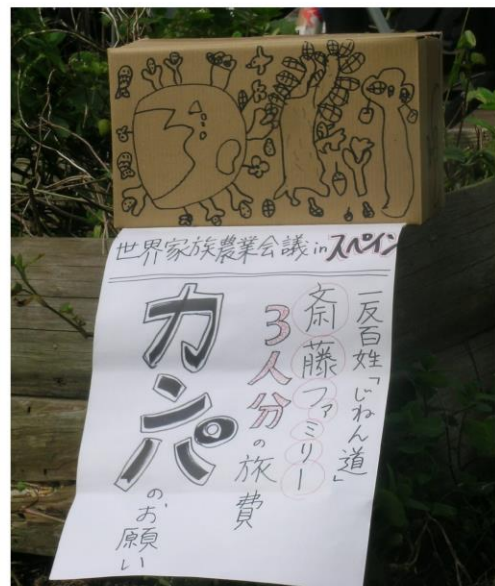 世界家族農業会議inスペイン
一反百姓「じねん道」
斎藤ファミリー
3人分の旅費
カンパのお願い